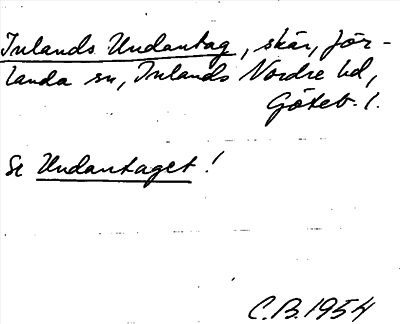 Inlands Undantag, skär, Jör-
landa sn, Inlands Nordre hd,
Göteb. l.
Se Undantaget!
C.B. 1954